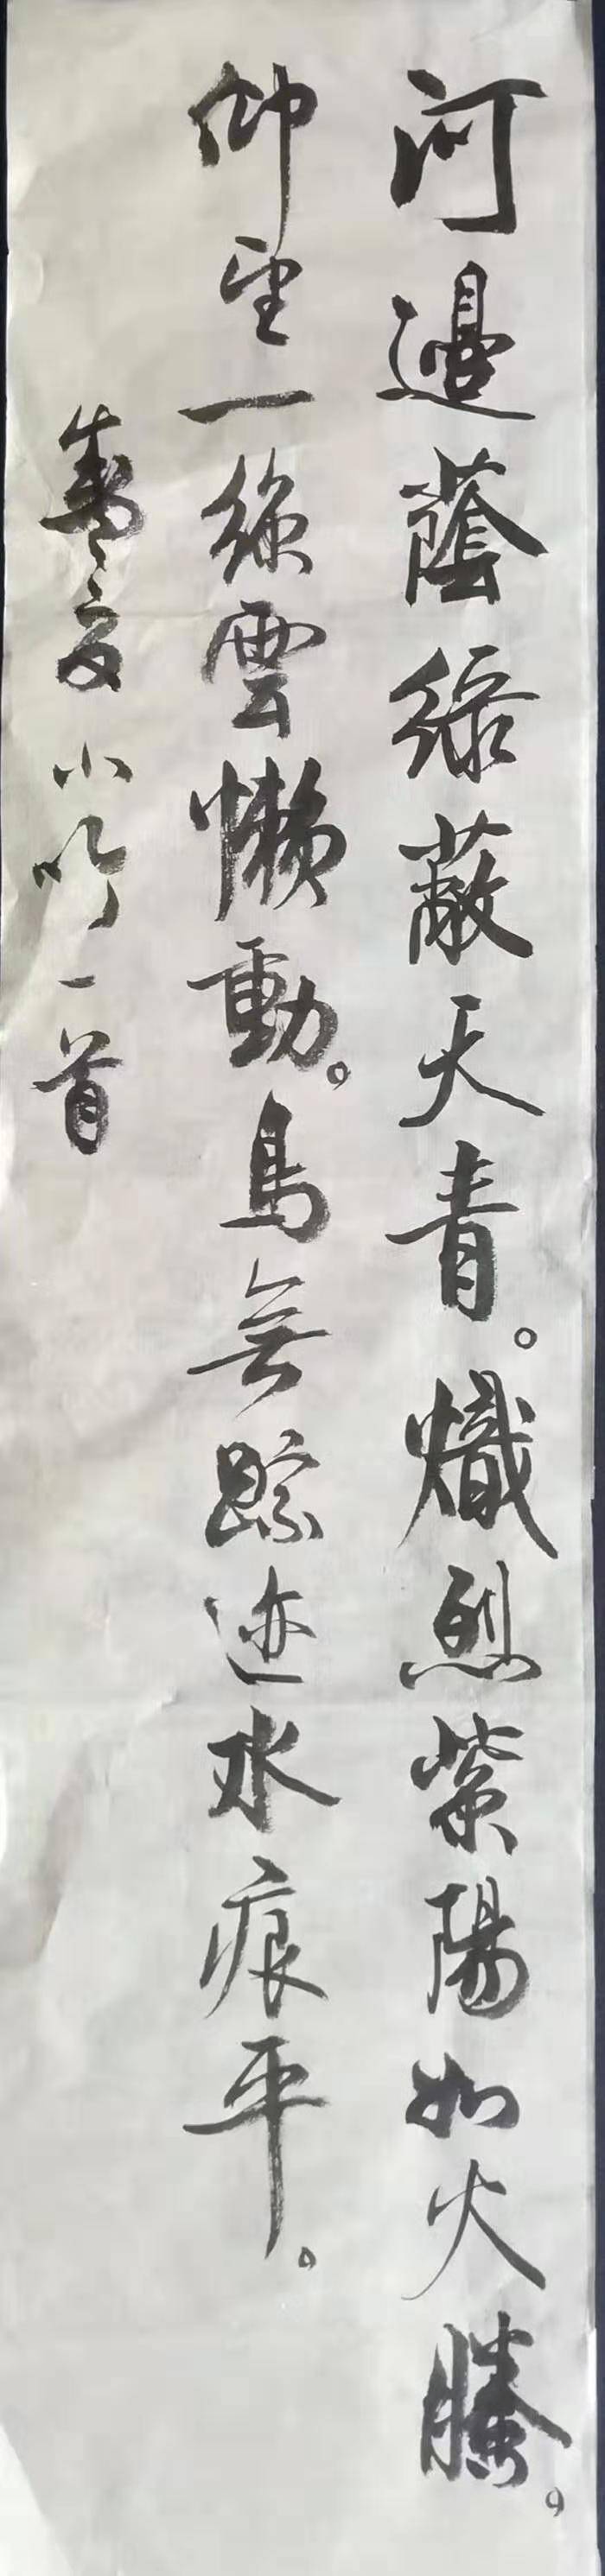 河邊蔭綠蔽天青。熾烈紫陽如火騰。
仰望一絲雲懶動。鳥無踪迹水痕平。
夏小吟一首